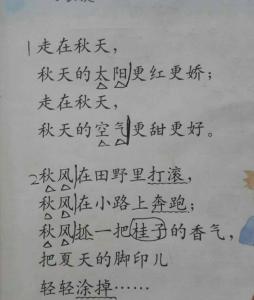 1走在秋天，
秋天的太阳更红更娇；
走在秋天，
秋天的空气更甜更好。
2秋风在田野里打滚，
秋风在小路上奔跑；
秋风抓一把桂子的香气，
把夏天的脚印儿
轻轻涂掉……